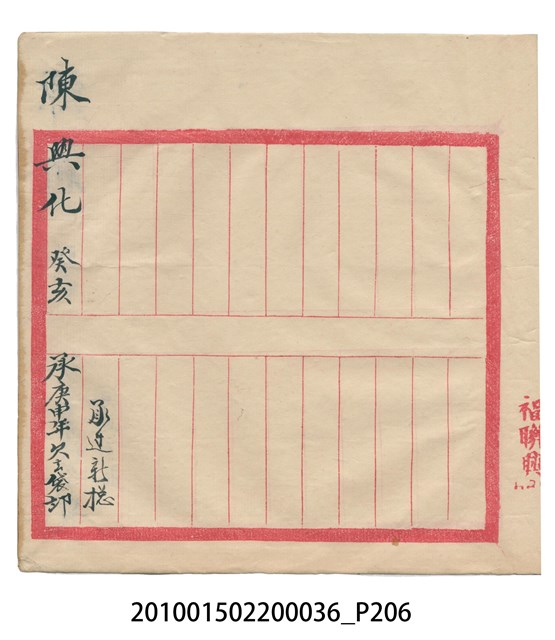 陳興化 癸亥
承庚申年欠
承進新總
福聯興
201001502200036_P206